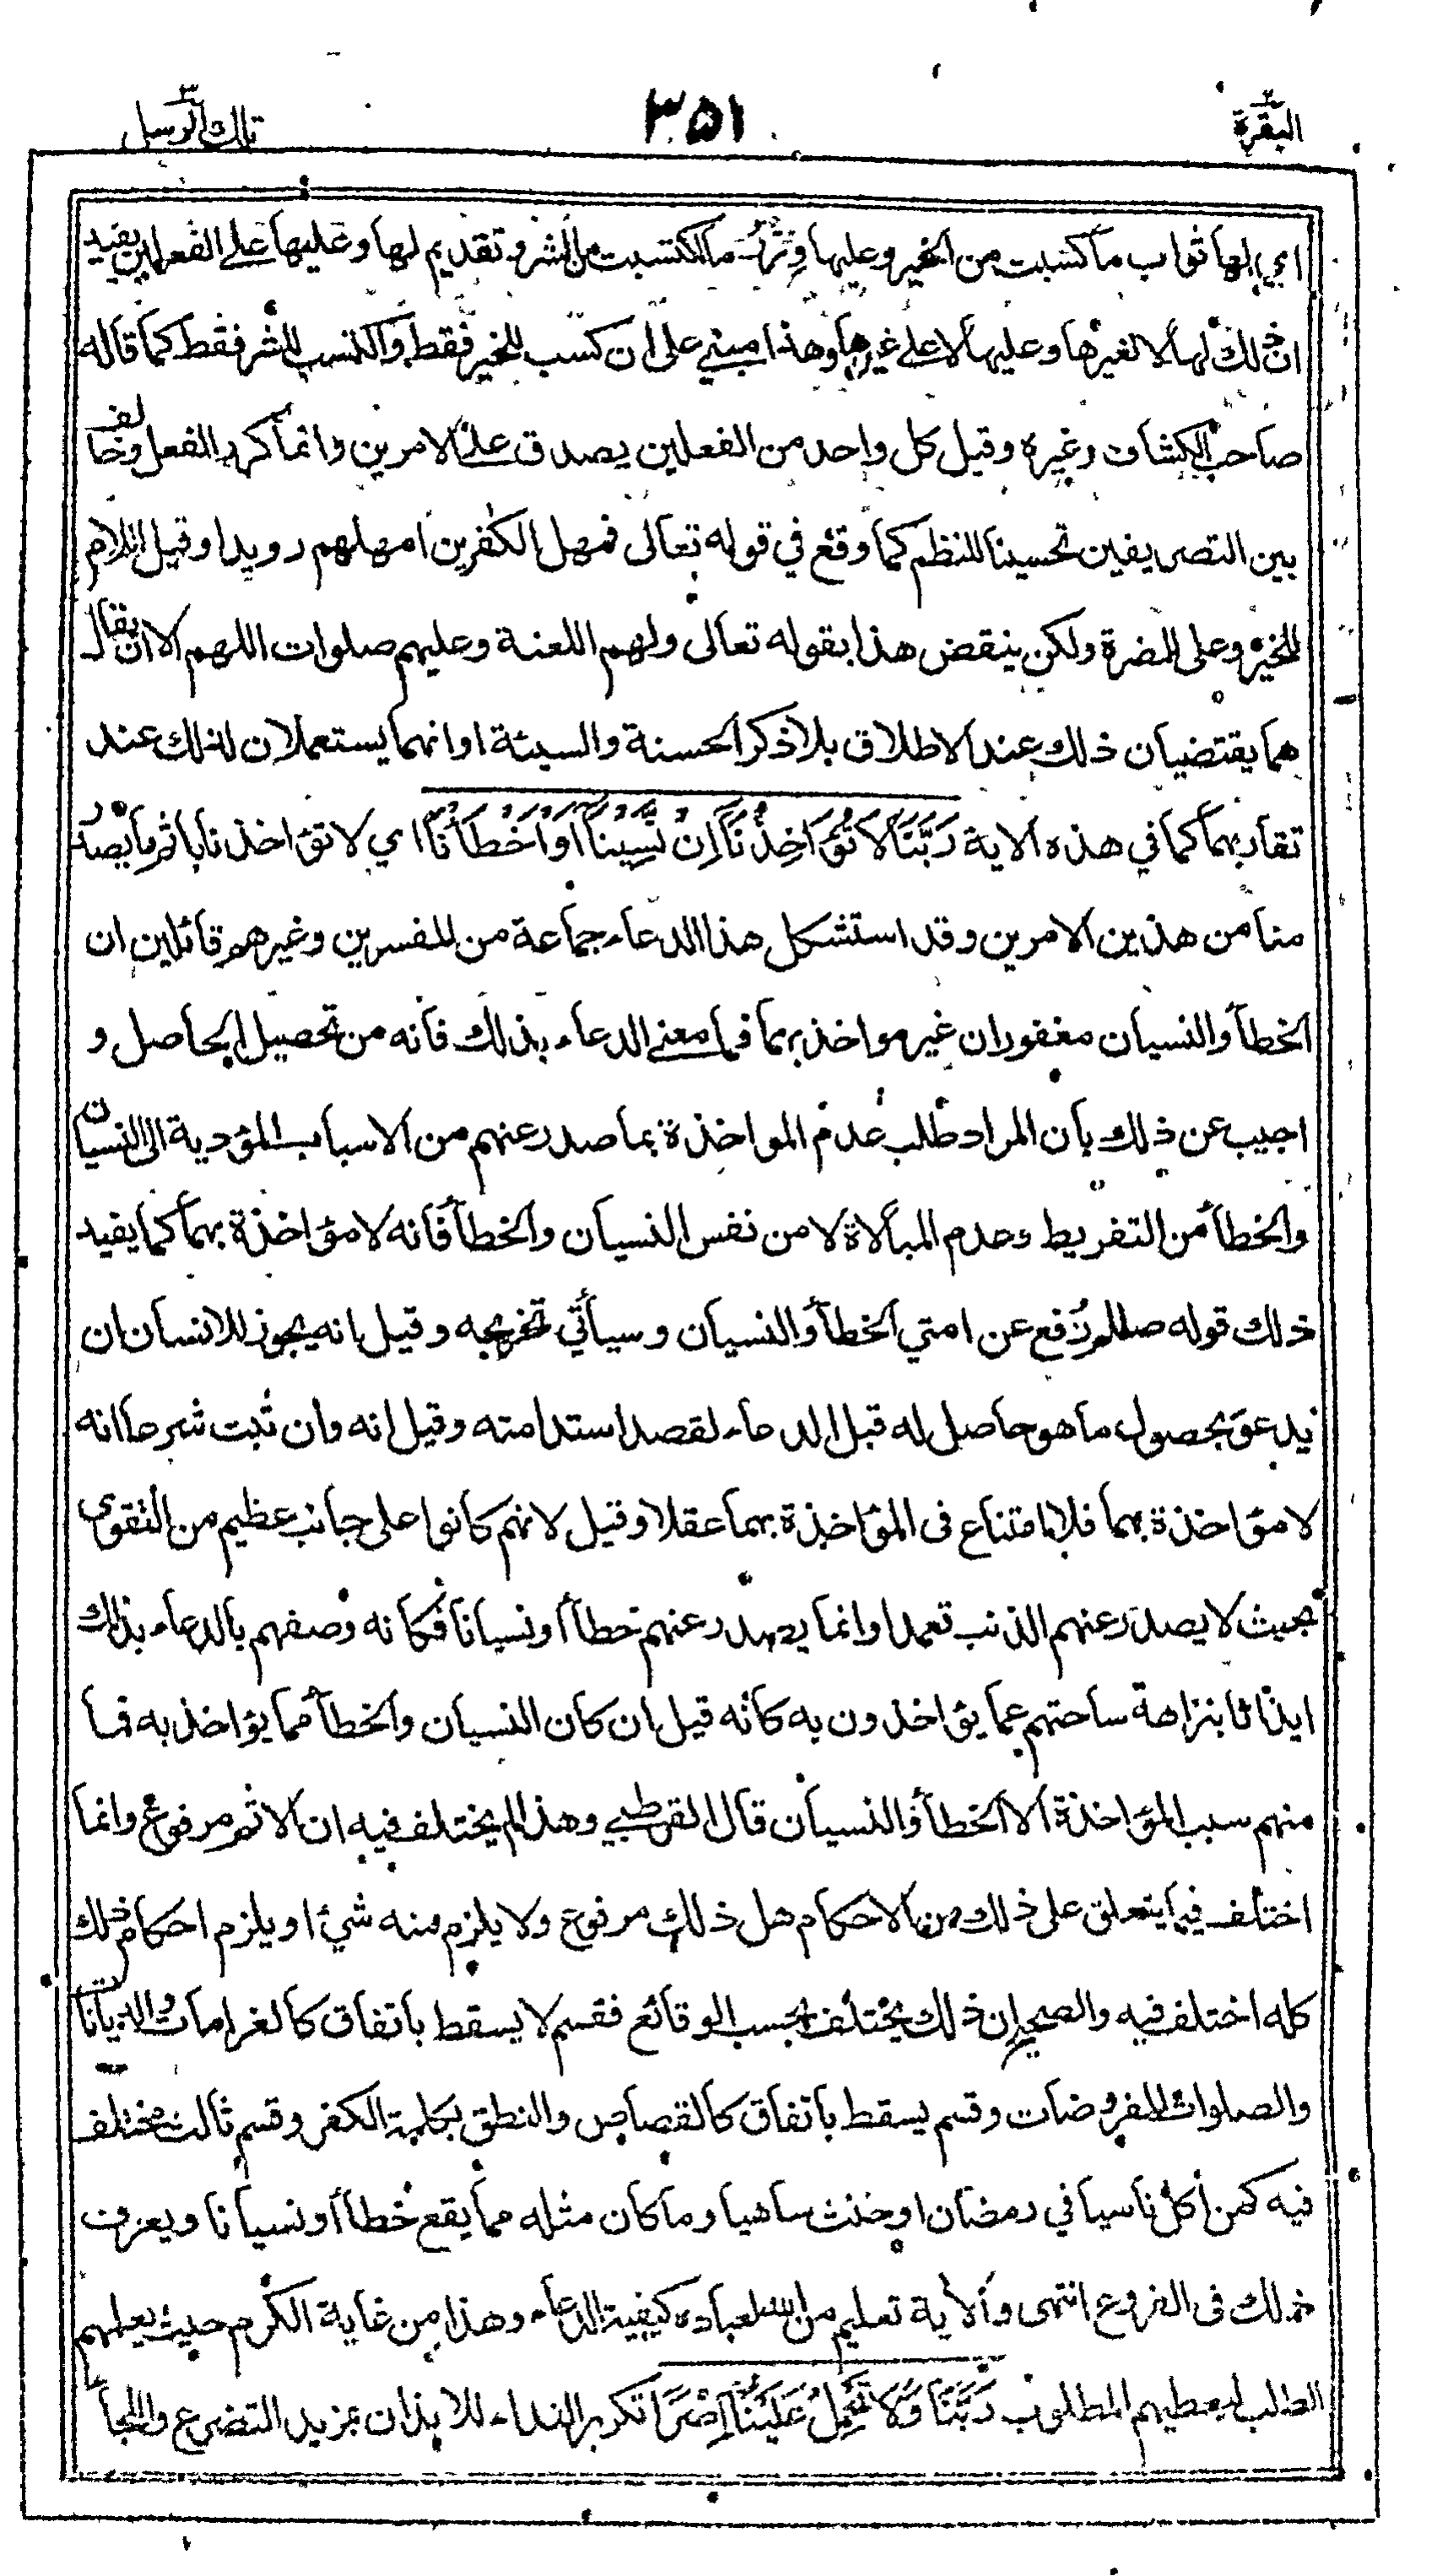 البقرة ٣
٣٥١
تلك الرسل ٣
اي لها ثواب ما كسبت من الخير وعليها وزر ما اكتسبت من الشر وتقديم لها وعليها على الفعلين يفيد
ان ذلك لها لا لغيرها وعليها لا على غيرها وهذا مبني على ان كسب للخير فقط واكتسب للشر فقط كما قاله
صاحب الكشاف وغيره وقيل كل واحد من الفعلين يصدق على الامرين وانما كرر الفعل وخالف
بين التصريفين تحسينا للنظم كما وقع في قوله تعالى فمهل الكفرين امهلهم رويدا وقيل اللام
للخير وعلى للمضرة ولكن ينقض هذا بقوله تعالى ولهم اللعنة وعليهم صلوات اللهم الا ان يقال
هما يقتضيان ذلك عند الاطلاق بلا ذكر الحسنة والسيئة او انهما يستعملان لذلك عند
تقاربهما كما في هذه الاية رَبَّنَا لَا تُؤَاخِذْنَا إِنْ نَسِينَا أَوْ أَخْطَأْنَا اي لا تؤاخذنا باثم ما يصدر
منا من هذين الامرين وقد استشكل هذا الدعاء جماعة من المفسرين وغيرهم قائلين ان
الخطأ والنسيان مغفوران غير مواخذ بهما فما معنى الدعاء بذلك فانه من تحصيل الحاصل و
اجيب عن ذلك بان المراد طلب عدم المواخذة بما صدر عنهم من الاسباب المؤدية الى النسيان
والخطأ من التفريط وعدم المبالاة لا من نفس النسيان والخطأ فانه لا مؤاخذة بهما كما يفيد
ذلك قوله صلالم رُفع عن امتي الخطأ والنسيان وسيأتي تخريجه وقيل انه يجوز للانسان ان
يدعو بحصول ما هو حاصل له قبل الدعاء لقصد استدامته وقيل انه وان ثبت شرعا انه
لا مؤاخذة بهما فلا امتناع في المؤاخذة بهما عقلا وقيل لانهم كانوا على جانب عظيم من التقوى
بحيث لا يصدر عنهم الذنب تعمدا وانما يصدر عنهم خطأ أو نسيانا فكانه وصفهم بالدعاء بذلك
ايذانا بنزاهة ساحتهم عما يؤاخذون به كانه قيل ان كان النسيان والخطأ مما يؤاخذ به فما
منهم سبب المؤاخذة الا الخطأ والنسيان قال القرطبي وهذا لم يختلف فيه ان الاثم مرفوع وانما
اختلف فيما يتعلق على ذلك من الاحكام هل ذلك مرفوع ولا يلزم منه شيء او يلزم احكام ذلك
كله اختلف فيه والصحيح ان ذلك يختلف بحسب الوقائع فقسم لا يسقط باتفاق كالغرامات والديانات
والصلوات المفروضات وقسم يسقط باتفاق كالقصاص والنطق بكلمة الكفر وقسم ثالث مختلف
فيه كمن أكل ناسيا في رمضان او حنث ساهيا وما كان مثله مما يقع خطأ أو نسيانا ويعرف
ذلك في الفروع انتهى والاية تعليم من الله لعباده كيفية الدعاء وهذا من غاية الكرم حيث يعلمهم
الطلب ليعطيهم المطلوب رَبَّنَا وَلَا تَحْمِلْ عَلَيْنَا إِصْرًا تكرير النداء للايذان بمزيد التضرع واللجأ